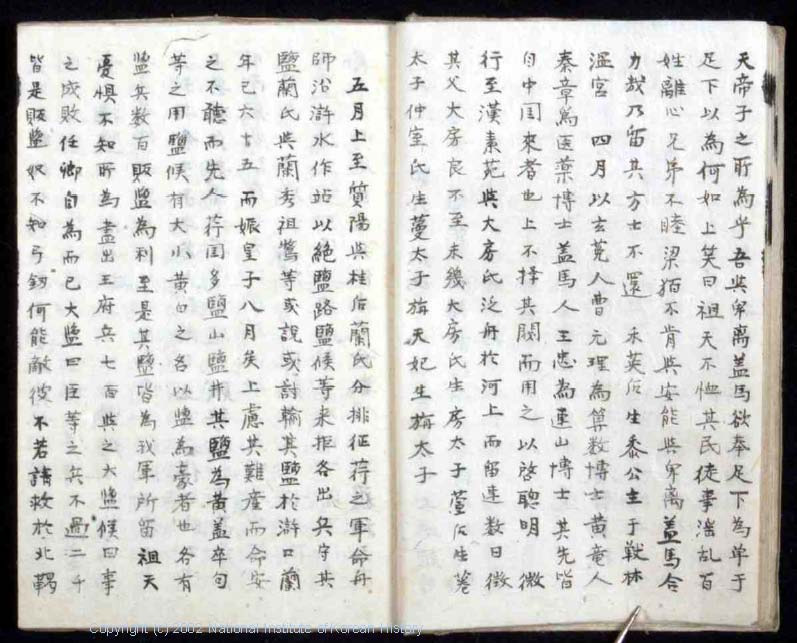 天帝子之所為乎吾与卑离盖馬欲奉足下為单于
足下以為何如上笑曰祖天不恤其民徒事淫乱百
姓離心兄弟不睦梁貊不肯与安能与卑离盖馬合
力哉乃留其方士不還 禾英后生黍公主于鞍林
温宮 四月以玄菟人曹元理為算数博士黄竜人
秦章為医薬博士盖馬人王忠為運山博士其先皆
自中国来者也上不择其閥而用之以啓聰明 微
行至漢素苑与大房氏泛舟於河上而留連数日徴
其父大房良不至未幾大房氏生房太子 萱后生蓍
太子仲室氏生蔓太子旃天妃生旃太子
五月上至質陽与桂后蘭氏分排征荇之軍命舟
師沿滸水作站以絶鹽路鹽候等来拒各出兵守其
鹽蘭氏与蘭秀祖鷩等或說或討輸其鹽於滸口蘭
年已六十五而娠皇子八月矣上慮其难産而命安
之不聽而先人荇国多鹽山鹽井其鹽為黄盖卒旬
等之用鹽候有大小黄白之名以鹽為豪者也各有
鹽兵数百販鹽為利至是其鹽皆為我軍所留祖天
憂惧不知所為盡出王府兵七百与之大鹽候曰事
之成敗任卿自為而已大鹽曰臣等之兵不過二千
皆是販鹽奴不知弓釼何能敵彼不若請救於北鞨
Copyright (c) 2002 National Institute of Korean History